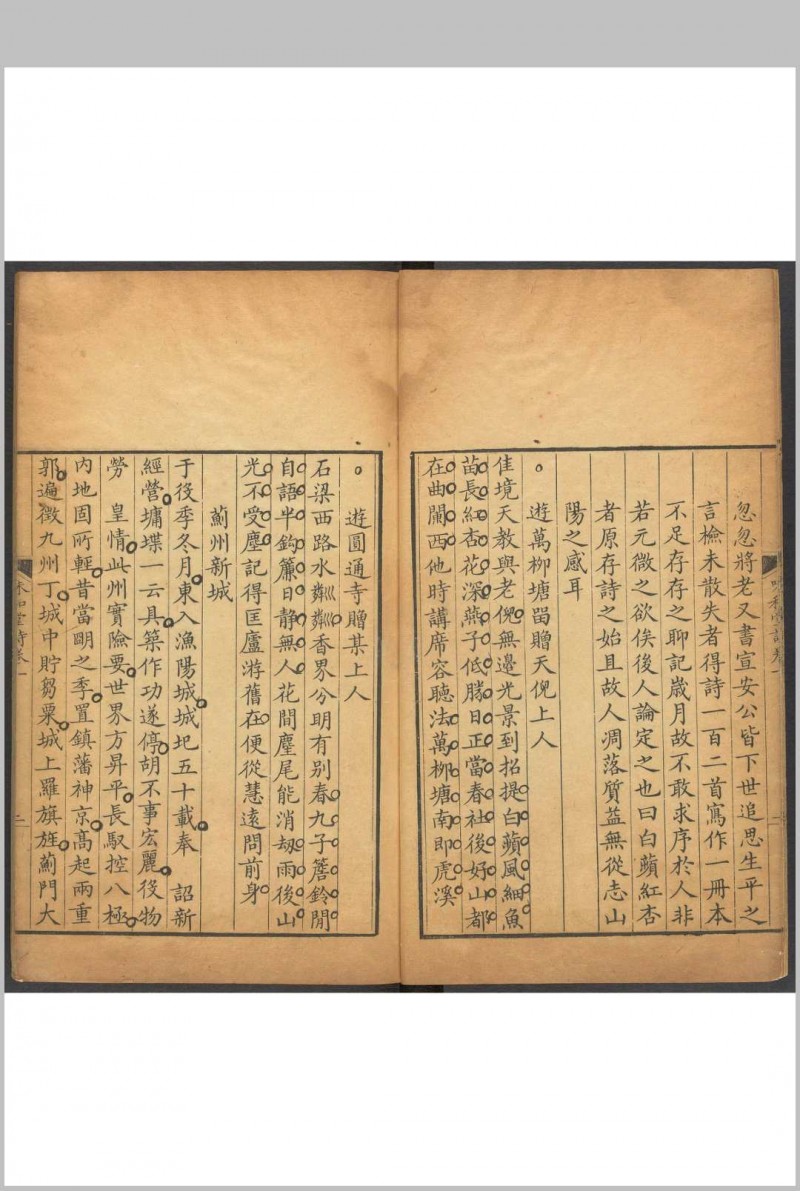 忽忽將老又書宣安公皆下世追思生平之
言檢未散失者得詩一百二首寫作一冊本
不足存存之聊記歲月故不敢求序於人非
若元微之欲俟後人論定之也曰白蘋紅杏
者原存詩之始且故人凋落質益無從志山
陽之感耳
遊萬柳塘畱贈天倪上人
佳境天教與老倪無邊光景到招提白蘋風細魚
苗長紅杏花深燕子低勝日正當春社後好山都
在曲闌西他時講席容聽法萬柳塘南即虎溪
二
遊圓通寺贈某上人
石梁西路水粼粼香界分明有別春九子簷鈴閒
自語半鈎簾日靜無人花間麈尾能消劫雨後山
光不受塵記得匡廬游舊在便從慧遠問前身
薊州新城
于役季冬月東入漁陽城城圮五十載奉 詔新
經營墉堞一云具築作功遂停胡不事宏麗後物
勞 皇情此州實險要世界方昇平長馭控八極
內地固所輕昔當明之季置鎮藩神京高起兩重
郭遍徵九州丁城中貯芻粟城上羅旗旌薊門大
二